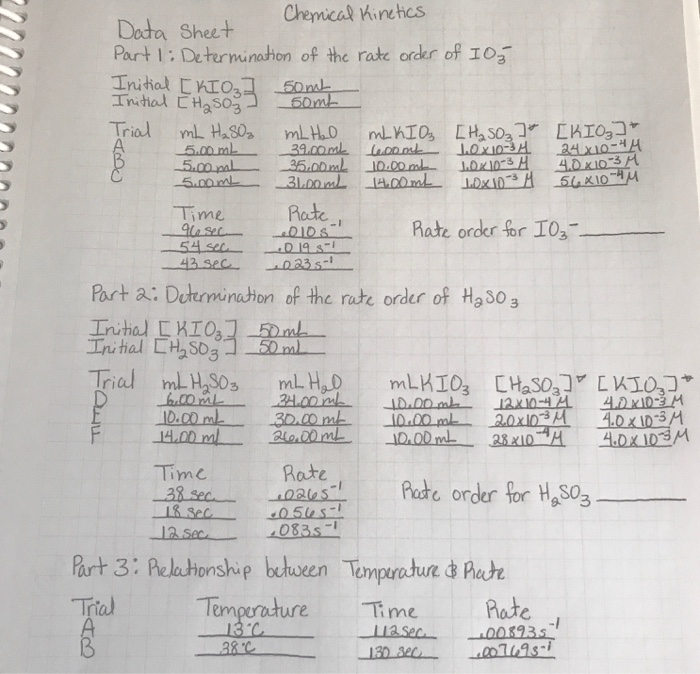 Chemical Kinetics
Data Sheet
Part 1: Determination of the rate order of IO3-
Initial [KIO3] 50ml
Initial [H2SO3] 50ml
Trial mL H2SO3 mL H2O mL KIO3 [H2SO3]* [KIO3]*
A 5.00 mL 39.00 mL 6.00 mL 1.0x10-3 M 24x10-4 M
B 5.00 mL 35.00 mL 10.00 mL 1.0x10-3 M 4.0x10-3 M
C 5.00 mL 31.00 mL 14.00 mL 1.0x10-3 M 56x10-4 M
Time Rate
96 sec .010 s-1 Rate order for IO3-
54 sec .019 s-1
43 sec .023 s-1
Part 2: Determination of the rate order of H2SO3
Initial [KIO3] 50ml
Initial [H2SO3] 50ml
Trial mL H2SO3 mL H2O mL KIO3 [H2SO3]* [KIO3]*
D 6.00 mL 34.00 mL 10.00 mL 12x10-4 M 4.0x10-3 M
E 10.00 ml 30.00 mL 10.00 mL 2.0x10-3 M 4.0x10-3 M
F 14.00 ml 26.00 mL 10.00 mL 28x10-4 M 4.0x10-3 M
Time Rate
38 sec .026s-1 Rate order for H2SO3
18 sec .056s-1
12 sec .083s-1
Part 3: Relationship between Temperature & Rate
Trial Temperature Time Rate
A 13°C 112 sec .00893s-1
B 38°C 130 sec .00769s-1